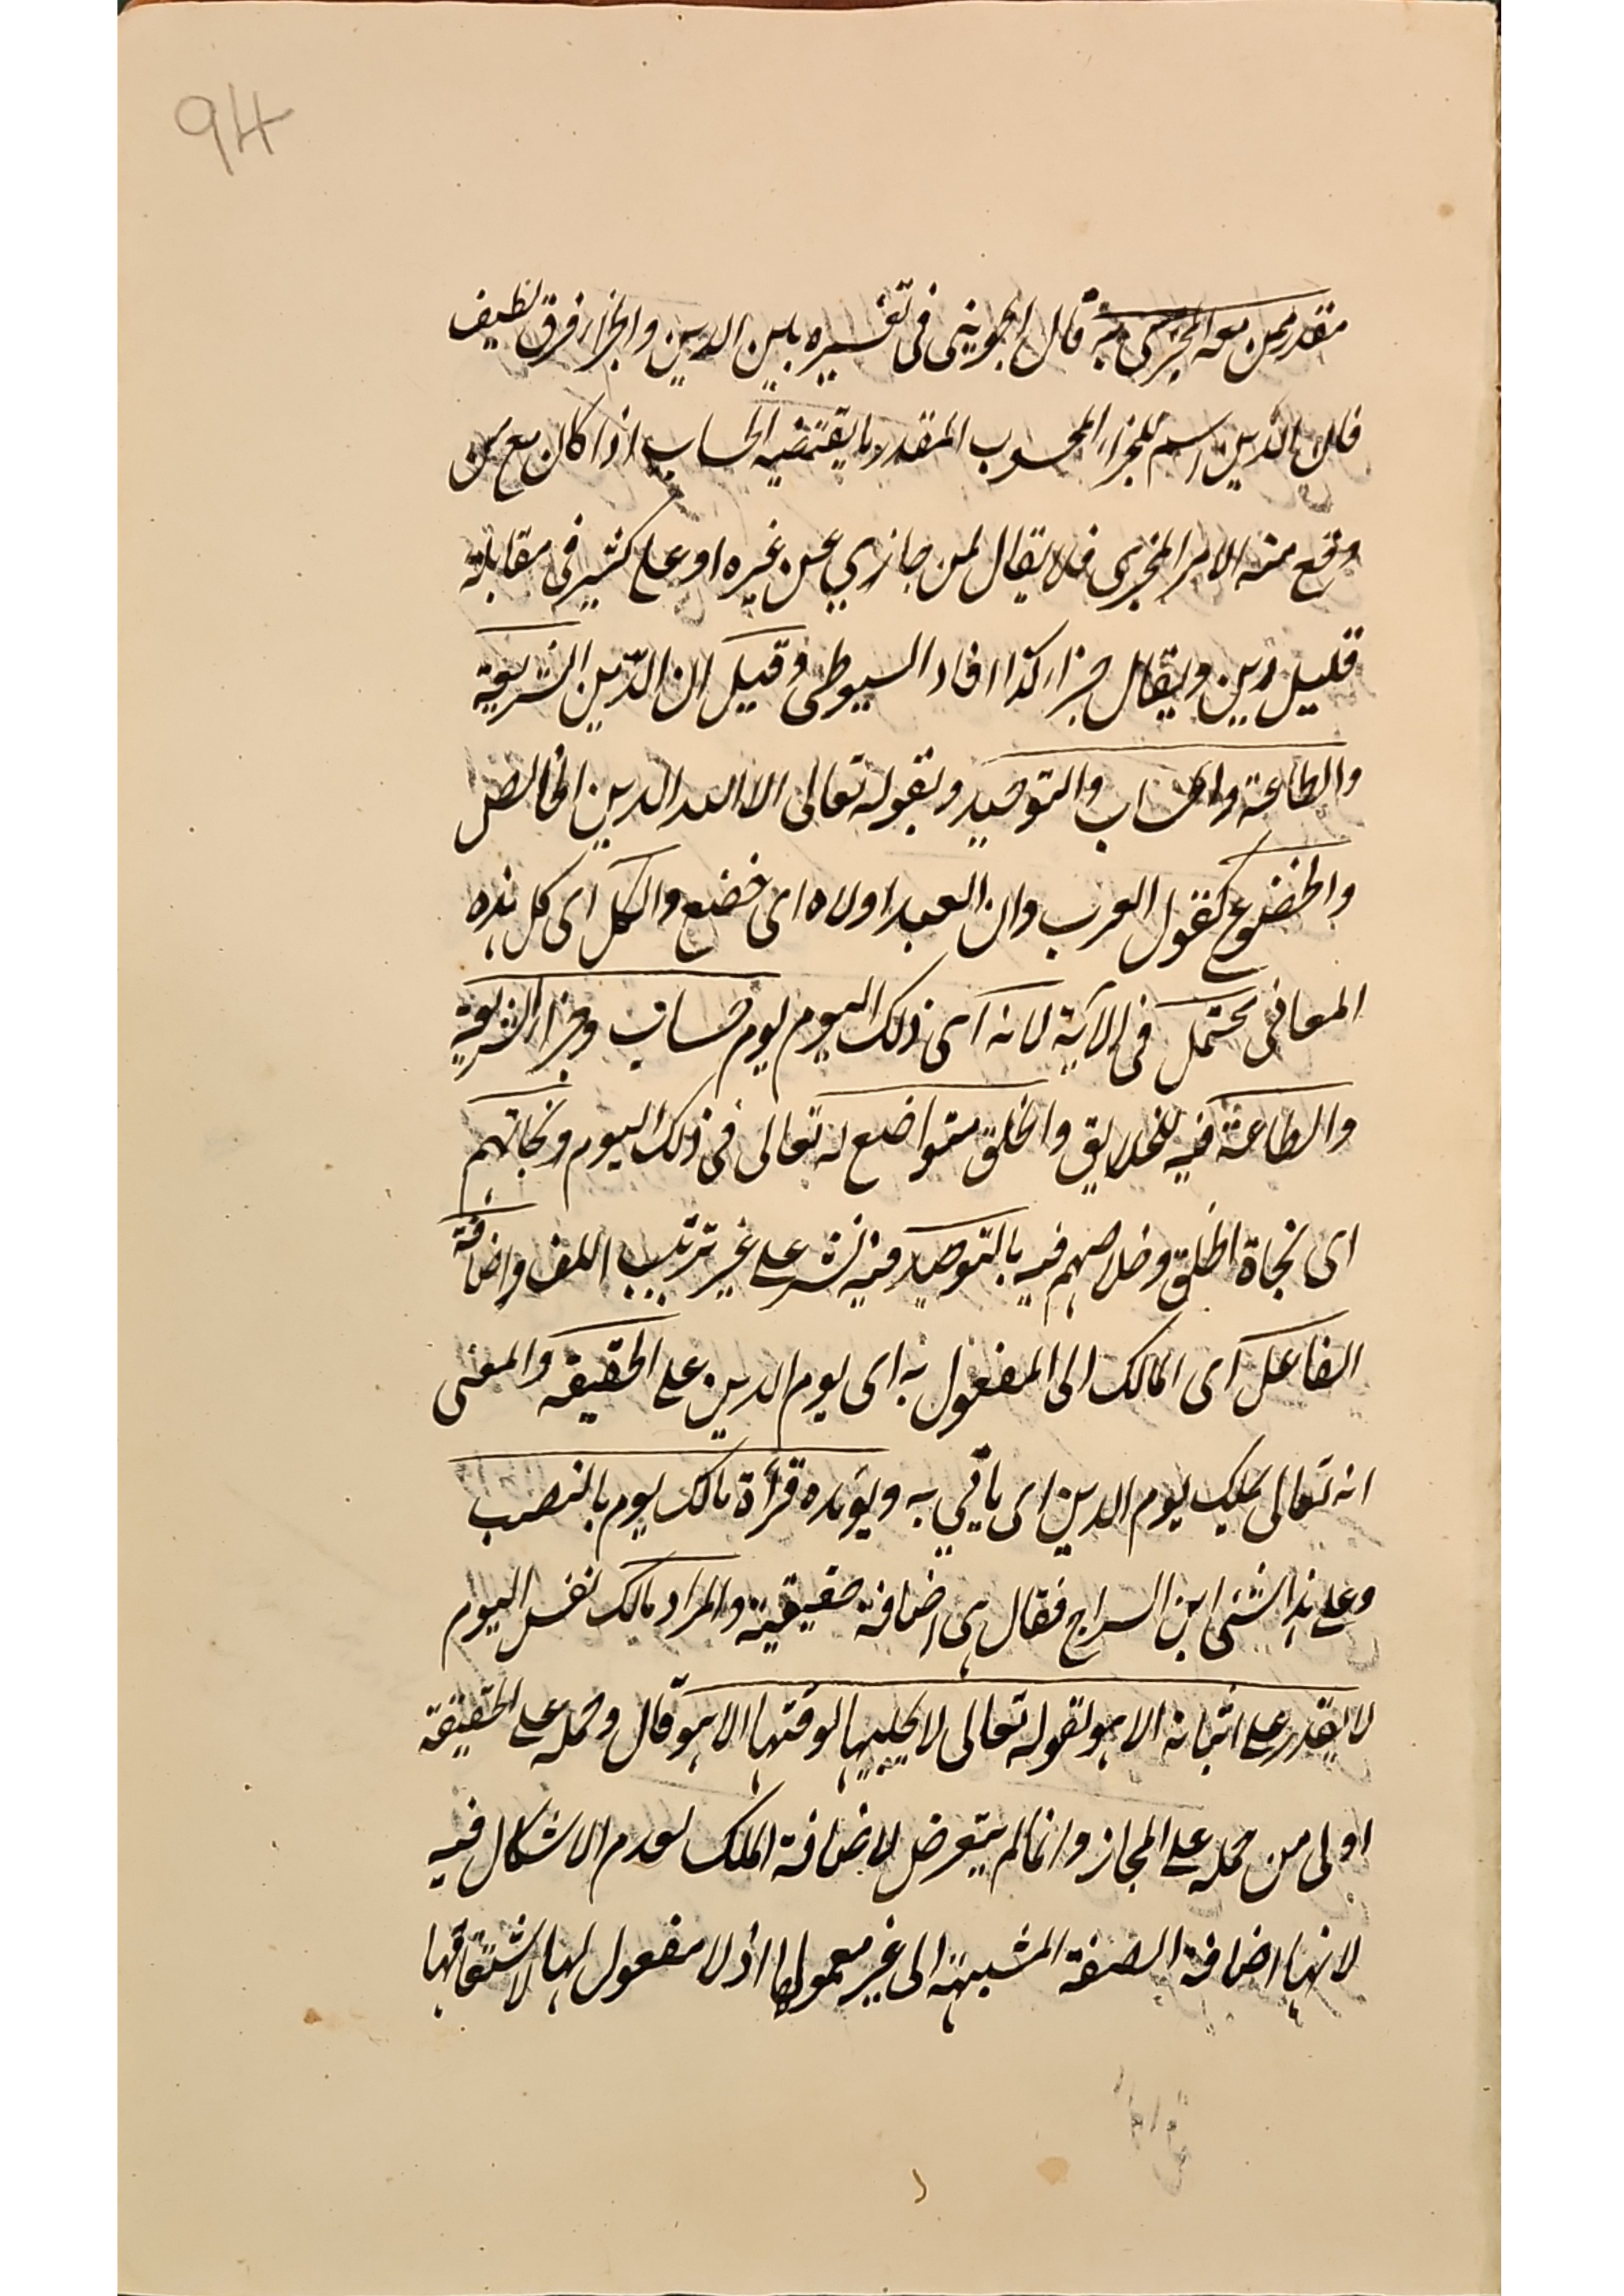 94
مقدر ممن معه المجزى به قال الجوينى فى تفسيره بين الدين والجزاء فرق لطيف
فان الدين رسم للجزاء المحسوب المقدر بما يقتضيه الحساب اذا كان مع من
وقع منه الامر المجزى فلا يقال لمن جازي عن غيره او على كثير فى مقابلة
قليل دين ويقال جزاء كذا افاد السيوطى وقيل ان الدّين الشريعة
والطاعة والحساب والتوحيد وبقوله تعالى الا لله الدين الخالص
والخضوع كقول العرب دان العبد اولاه اى خضع والكل اى كل هذه
المعانى يحتمل فى الآية لانه اى ذلك اليوم يوم حساب وجزاء الشريعة
والطاعة فيه للخلايق والخلق متواضع له تعالى فى ذلك اليوم ونجاتهم
اى نجاة الخلق وخلاصهم فيه بالتوحيد فيه نشر على غير ترتيب اللف واضافة
الفاعل اى المالك الى المفعول به اى يوم الدين على الحقيقه والمعنى
انه تعالى يملك يوم الدين اى ياتي به ويؤيده قرأة مالك يوم بالنصب
وعلى هذا مشى ابن السراج فقال هى اضافة حقيقية والمراد مالك نفس اليوم
لا يقدر على اتيانه الا هو لقوله تعالى لا يجليها لوقتها الا هو قال وحمله على الحقيقة
اولى من حمله على المجاز وانما لم يتعرض لاضافة الملك لعدم الاشكال فيه
لانها اضافة الصفة المشبهة الى غير معمولها اذ لا مفعول لها لاشتقاقها